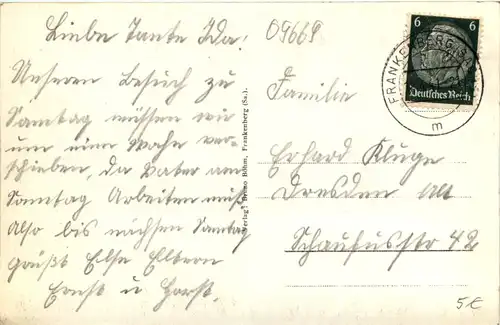 Liebe Tante Ida!
Unseren Besuch zu
Samstag müssen wir
um eine Woche ver-
schieben, da Vater am
Samstag Arbeiten muß
Also bis nächsen Samstag
grüßt Else Eltern
Ernst u Horst.
09669
Verlag: Bruno Böhm, Frankenberg (Sa.).
6 6
Deutsches Reich
FRANKENBERG
m
Familie
Erhard Kluge
Dresden Alt
Schaufusstr 42
5€